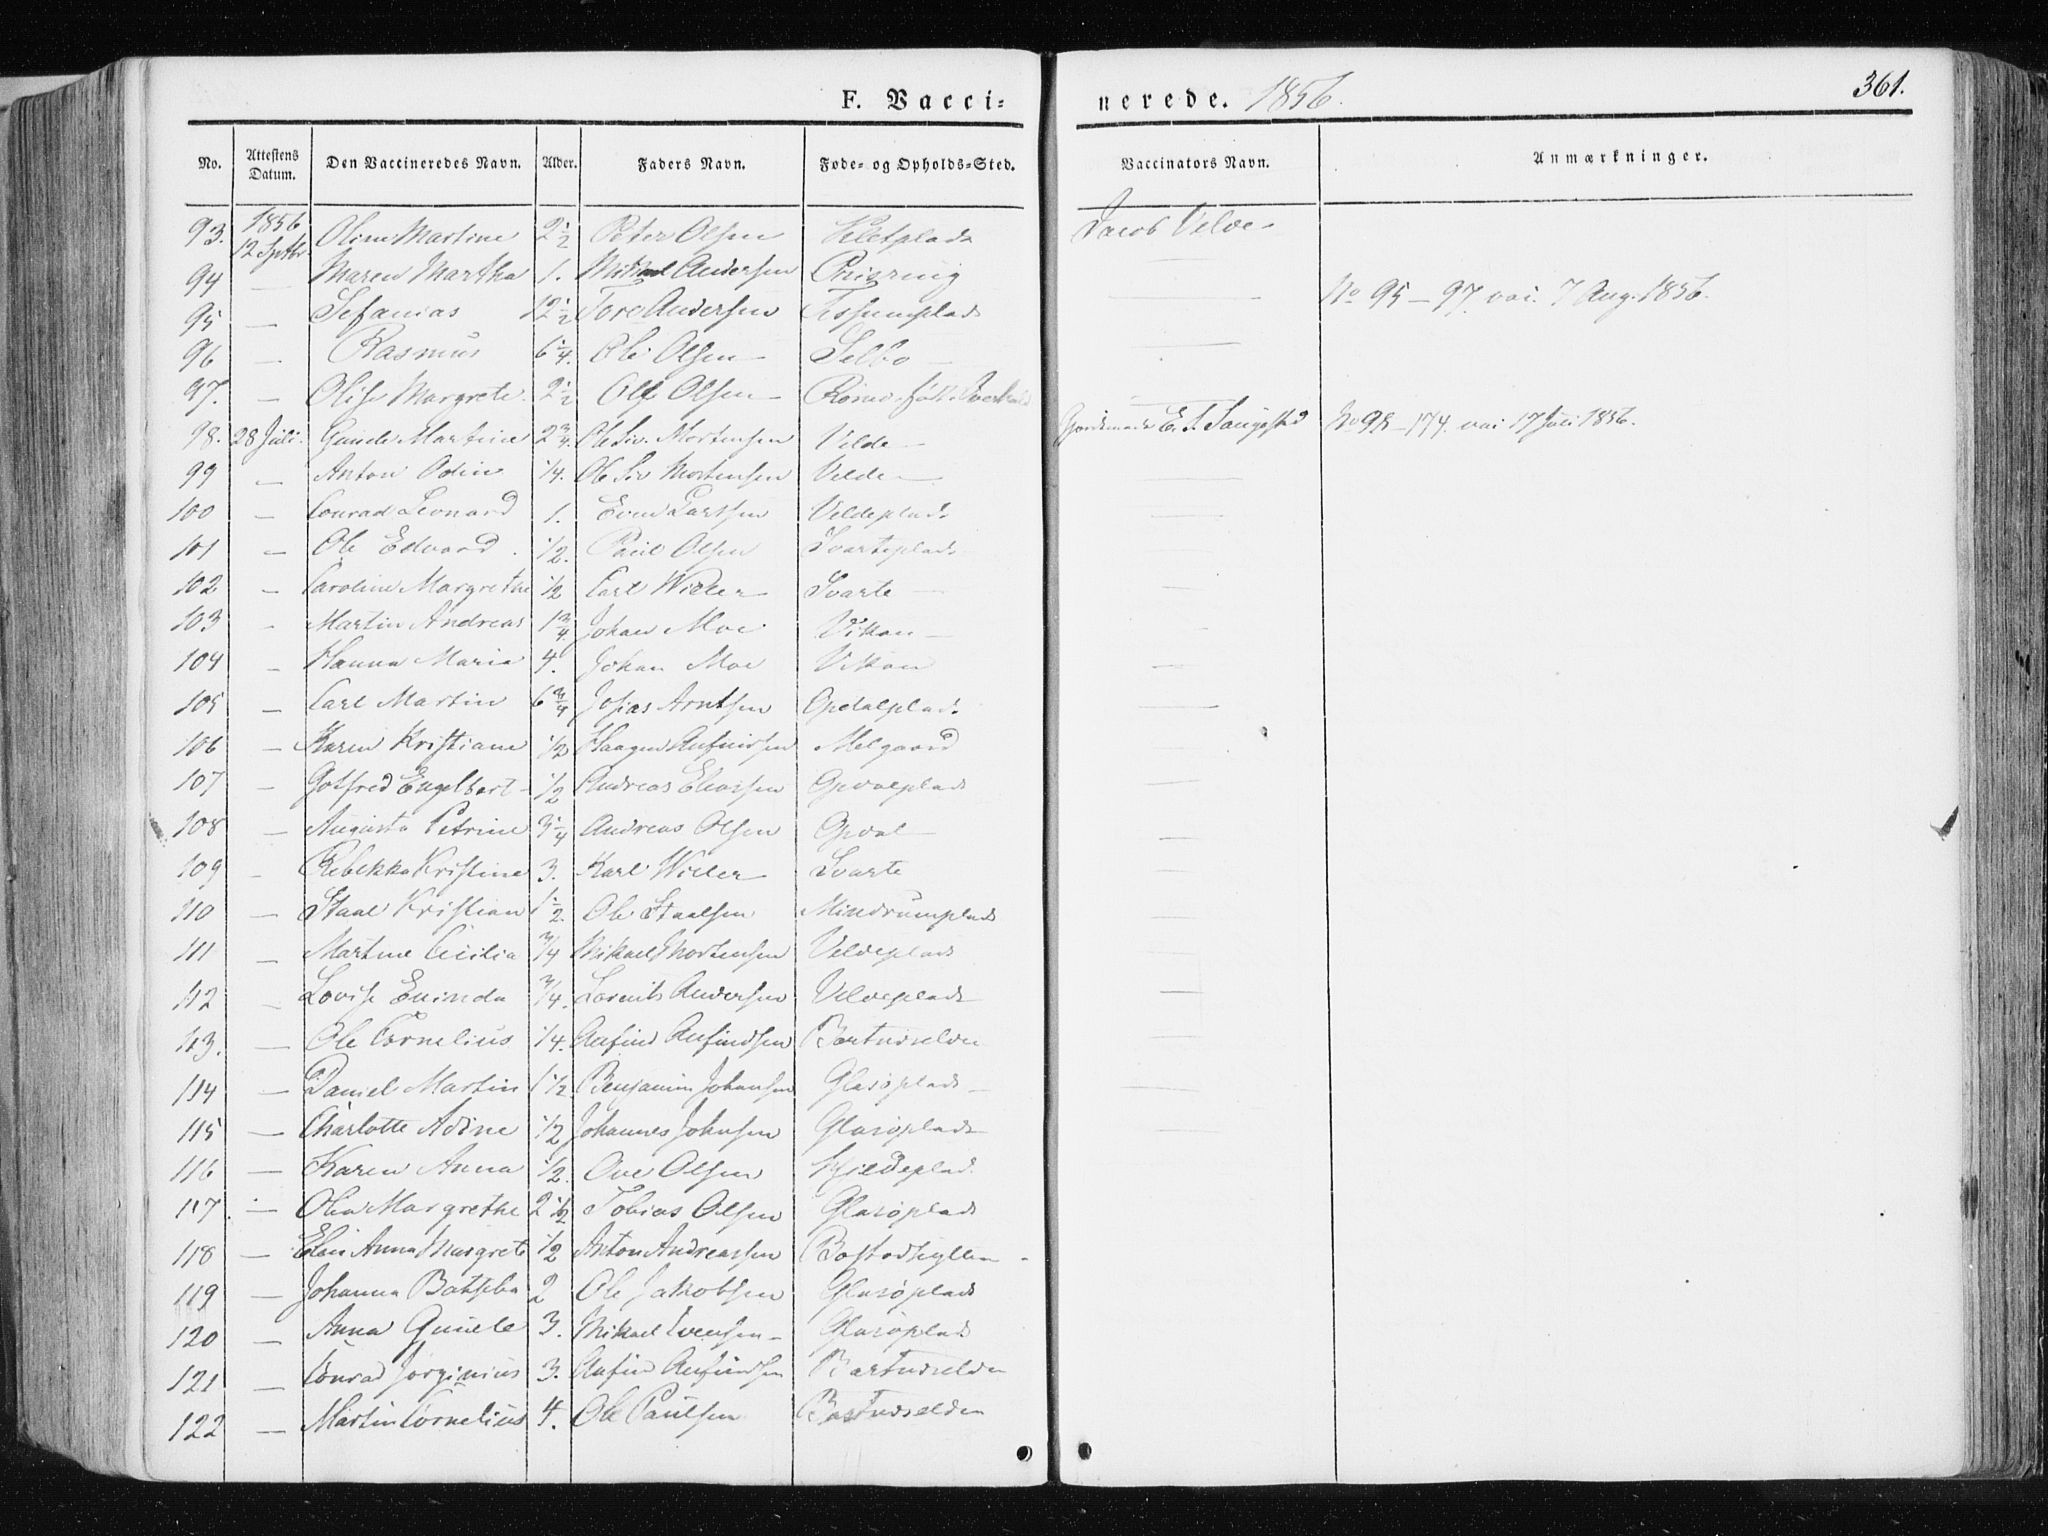 F. Vacci=nerede. 1856.
361.
No. Attestens Datum. Den Vaccineredes Navn. Alder. Faders Navn. Føde= og Opholds=Sted. Vaccinators Navn. Anmærkninger.
93. 1856 12 Septbr Oline Martine 2 1/2 Peter Olsen Jacob Velde
94 — Maren Martha 1. Andersen —
95 — Sefanias 12 1/2 Tore Andersen — No 95 — 97. vac. 7 Aug. 1856.
96 — Rasmus 6 1/4. Ole Olsen Selbo —
97. — Margrete 2 1/2 Ole Olsen —
98. 28 Juli. Martine 2 3/4. Ole Siv. Mortensen Velde — E. S. No 98 — 174. vac 17 Juli 1856.
99 — Anton Odin 1/4. Ole Siv Mortensen Velde —
100 — Conrad Leonard 1. Even Larssen Veldeplads
101 — Ole Edvard 1/2. Paul Olsen Svarteplads
102 — Caroline Margrethe 1/2 Carl Svarte —
103 - Martin Andreas 1 3/4. Johan Moe Vikan —
104 — Hanna Maria 4. Johan Moe Vikan
105 — Carl Martin 6 3/4 Josias Arntsen Opdalplads
106 — Karen Kristiane 1/2 Haagen Anfindsen Melgaard
107 — Gotfred Engelbert 1/2 Andreas Eliassen Opdalplads
108 — Augusta Petrine 3 1/4 Andreas Olsen Opdal —
109 — Rebekka Kristine 3. Karl Svarte
110 — Staal Kristian 1 1/2. Ole Staalsen Mindrumplads
111 — Martine Cicilia 3/4 Mikael Mortensen Veldeplads
112 — Lovise 3/4. Lornits Andersen Veldeplads
113. — Ole Cornelius 1/4. Anfind Anfindsen
114 — Daniel Martin 1 1/2 Benjamin Johansen Glasøplads —
115 — Charlotte Adine 1/2 Johannes Johnsen Glasøplads
116 — Karen Anna 1/2. Ove Olsen
117. — Olia Margrethe 2 1/2 Tobias Olsen Glasøplads
118 — Anna Margrete 1/2 Anton Andreassen
119 — Johanna Batseba 2 Ole Jakobsen Glasøplads
120 — Anna 3. Mikael Evensen — Glasøplads
121 — Conrad Jørginius 3. Anfin Anfindsen
122 — Martin Cornelius 4. Ole Paulsen